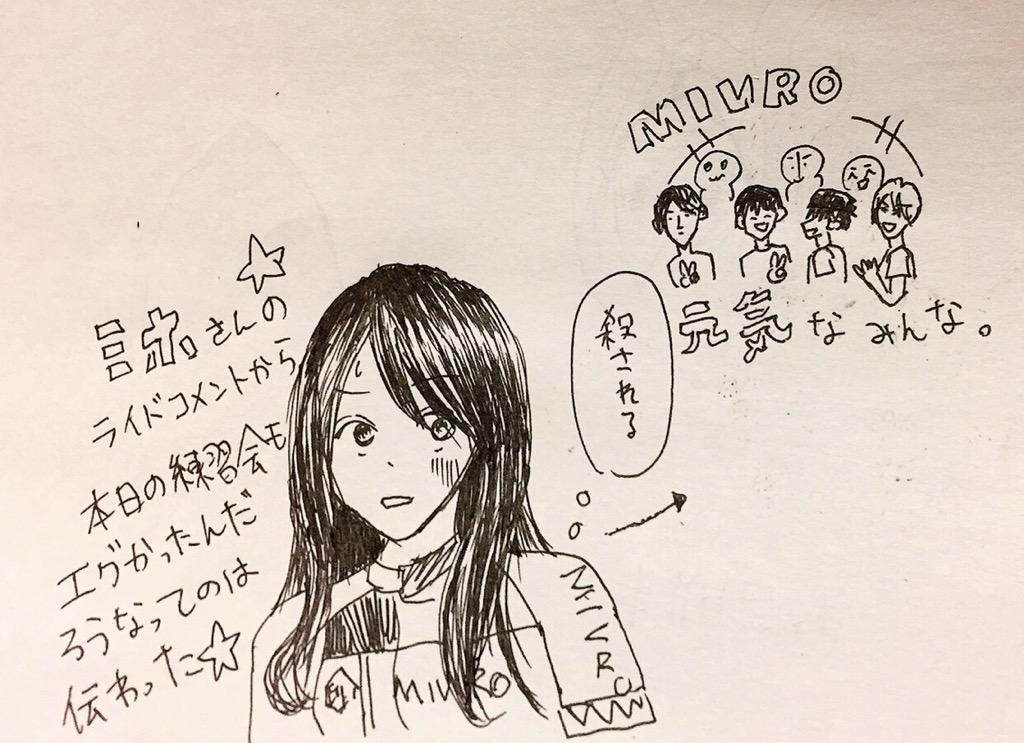 MIVRO
元気なみんな。
殺される
さんの
ライドコメントから
本日の練習会も
エグかったんだ
ろうなってのは
伝わった☆
MIVRO
MIVRO